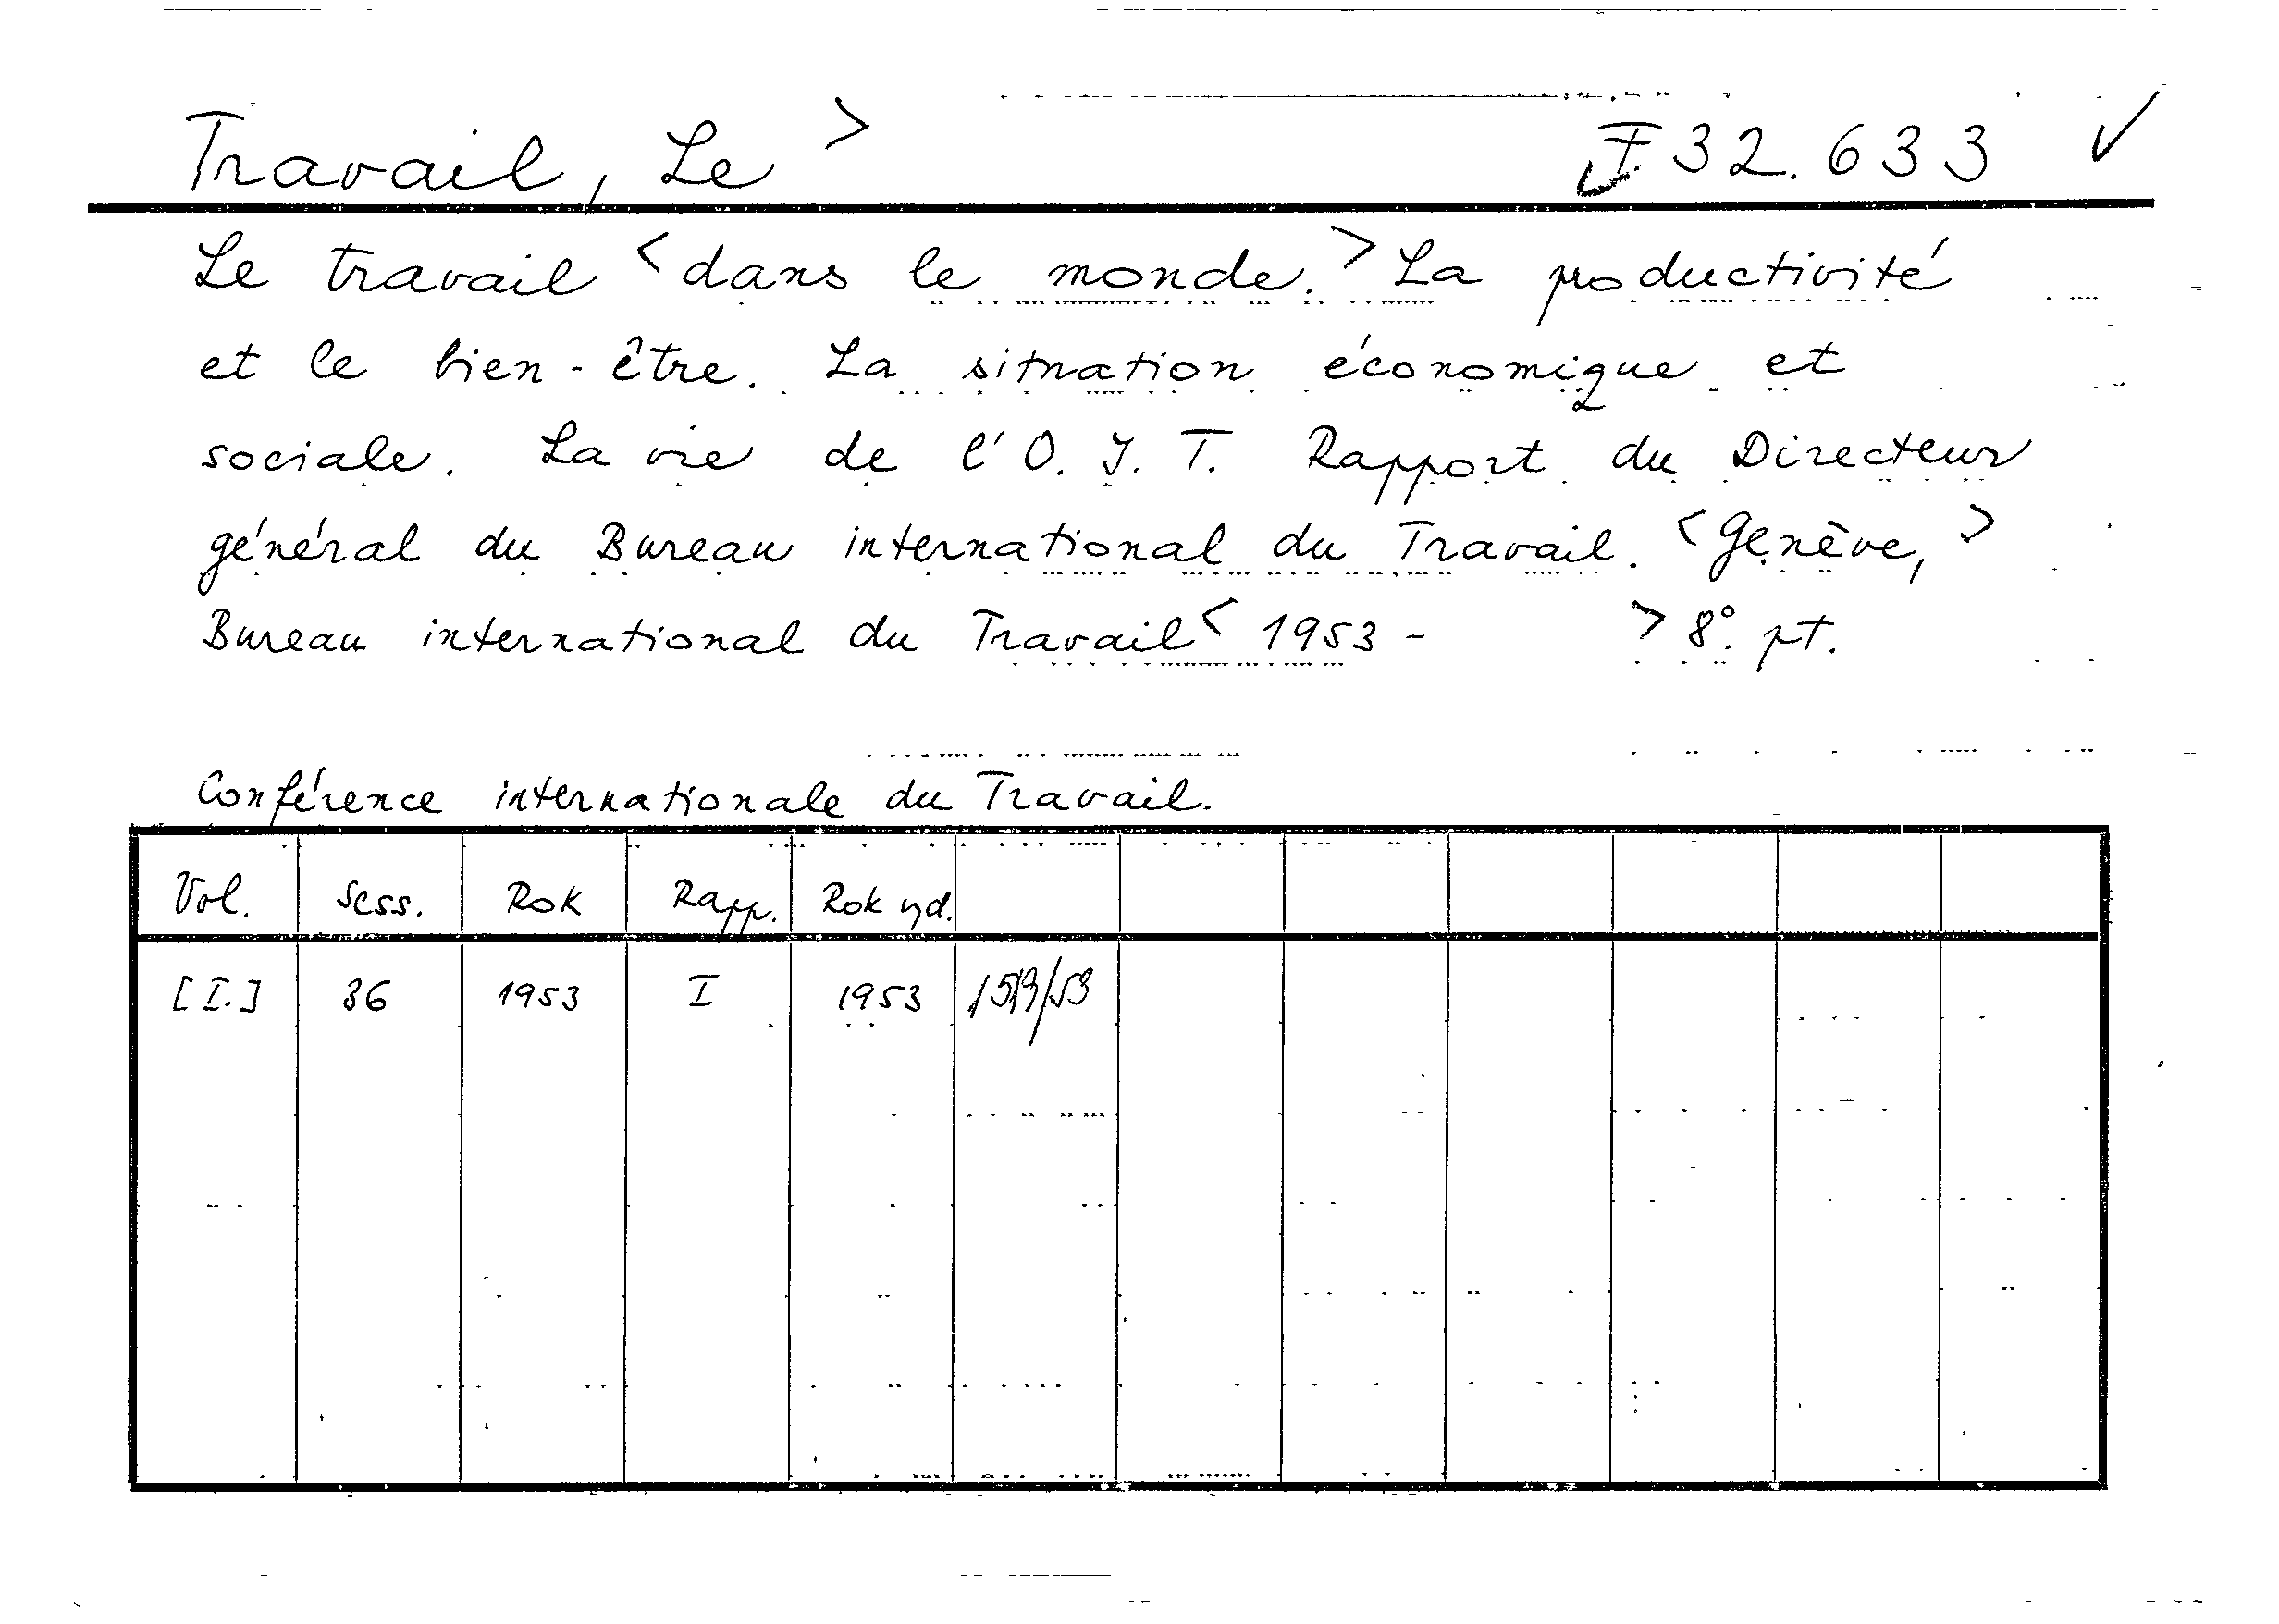 Travail, Le > F. 32.633 ✓
Le travail < dans le monde. > La productivité
et le bien-être. La situation économique et
sociale. La vie de l'O. I. T. Rapport du Directeur
général du Bureau international du Travail. < Genève, >
Bureau international du Travail < 1953 - > 8°. pt.
Conférence internationale du Travail.
Vol. Sess. Rok Rapp. Rok vyd.
[I.] 36 1953 I 1953